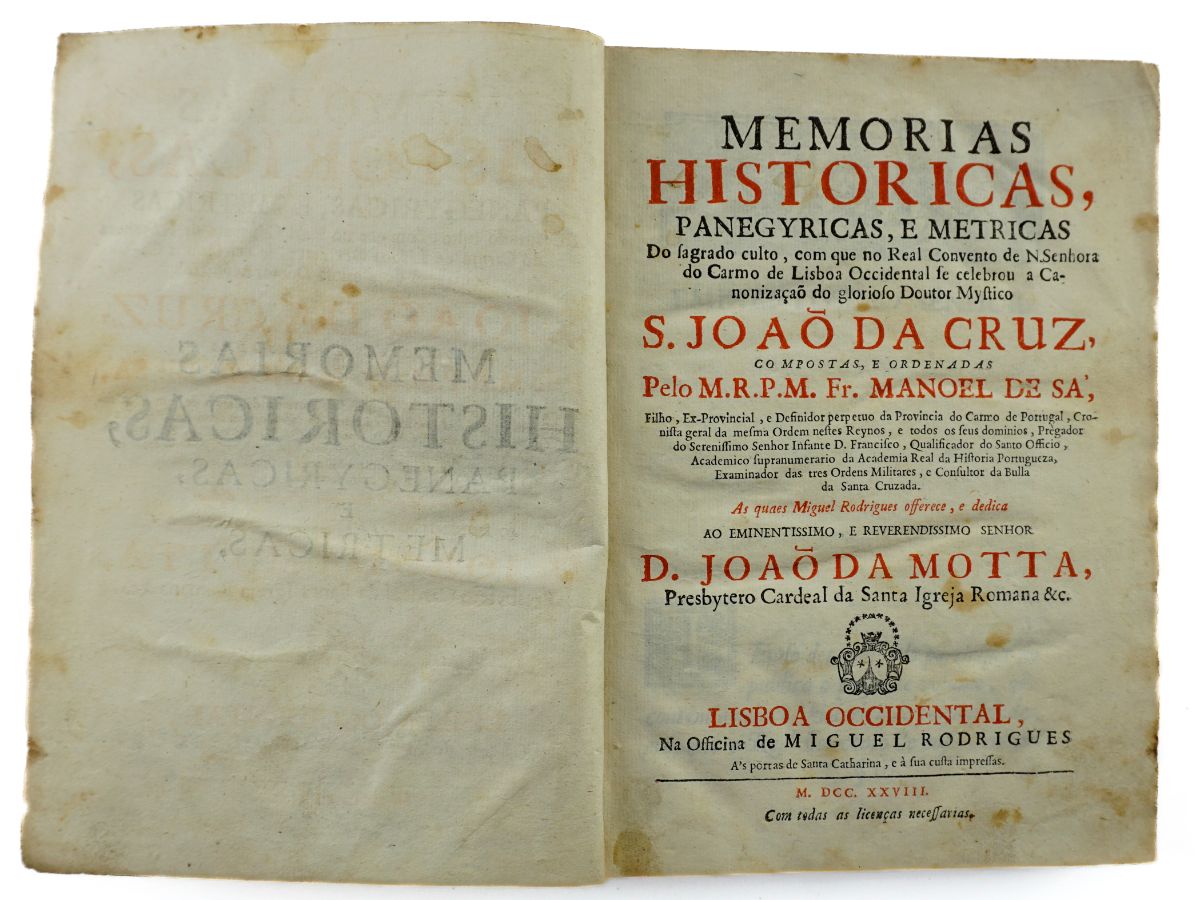 MEMORIAS
HISTORICAS,
PANEGYRICAS,
E
METRICAS,
MEMORIAS
HISTORICAS,
PANEGYRICAS, E METRICAS
Do ſagrado culto, com que no Real Convento de N.Senhora
do Carmo de Lisboa Occidental ſe celebrou a Ca-
nonizaçaõ do glorioſo Doutor Myſtico
S. JOAÕ DA CRUZ,
COMPOSTAS, E ORDENADAS
Pelo M.R.P.M. Fr. MANOEL DE SA',
Filho, Ex-Provincial, e Definidor perpetuo da Provincia do Carmo de Portugal, Cro-
niſta geral da meſma Ordem neſtes Reynos, e todos os ſeus dominios, Prègador
do Sereniſſimo Senhor Infante D. Franciſco, Qualificador do Santo Officio,
Academico ſupranumerario da Academia Real da Hiſtoria Portugueza,
Examinador das tres Ordens Militares, e Conſultor da Bulla
da Santa Cruzada.
As quaes Miguel Rodrigues offerece, e dedica
AO EMINENTISSIMO, E REVERENDISSIMO SENHOR
D. JOAÕ DA MOTTA,
Presbytero Cardeal da Santa Igreja Romana &c.
LISBOA OCCIDENTAL,
Na Officina de MIGUEL RODRIGUES
A's portas de Santa Catharina, e à ſua cuſta impreſſas.
M. DCC. XXVIII.
Com todas as licenças neceſſarias.